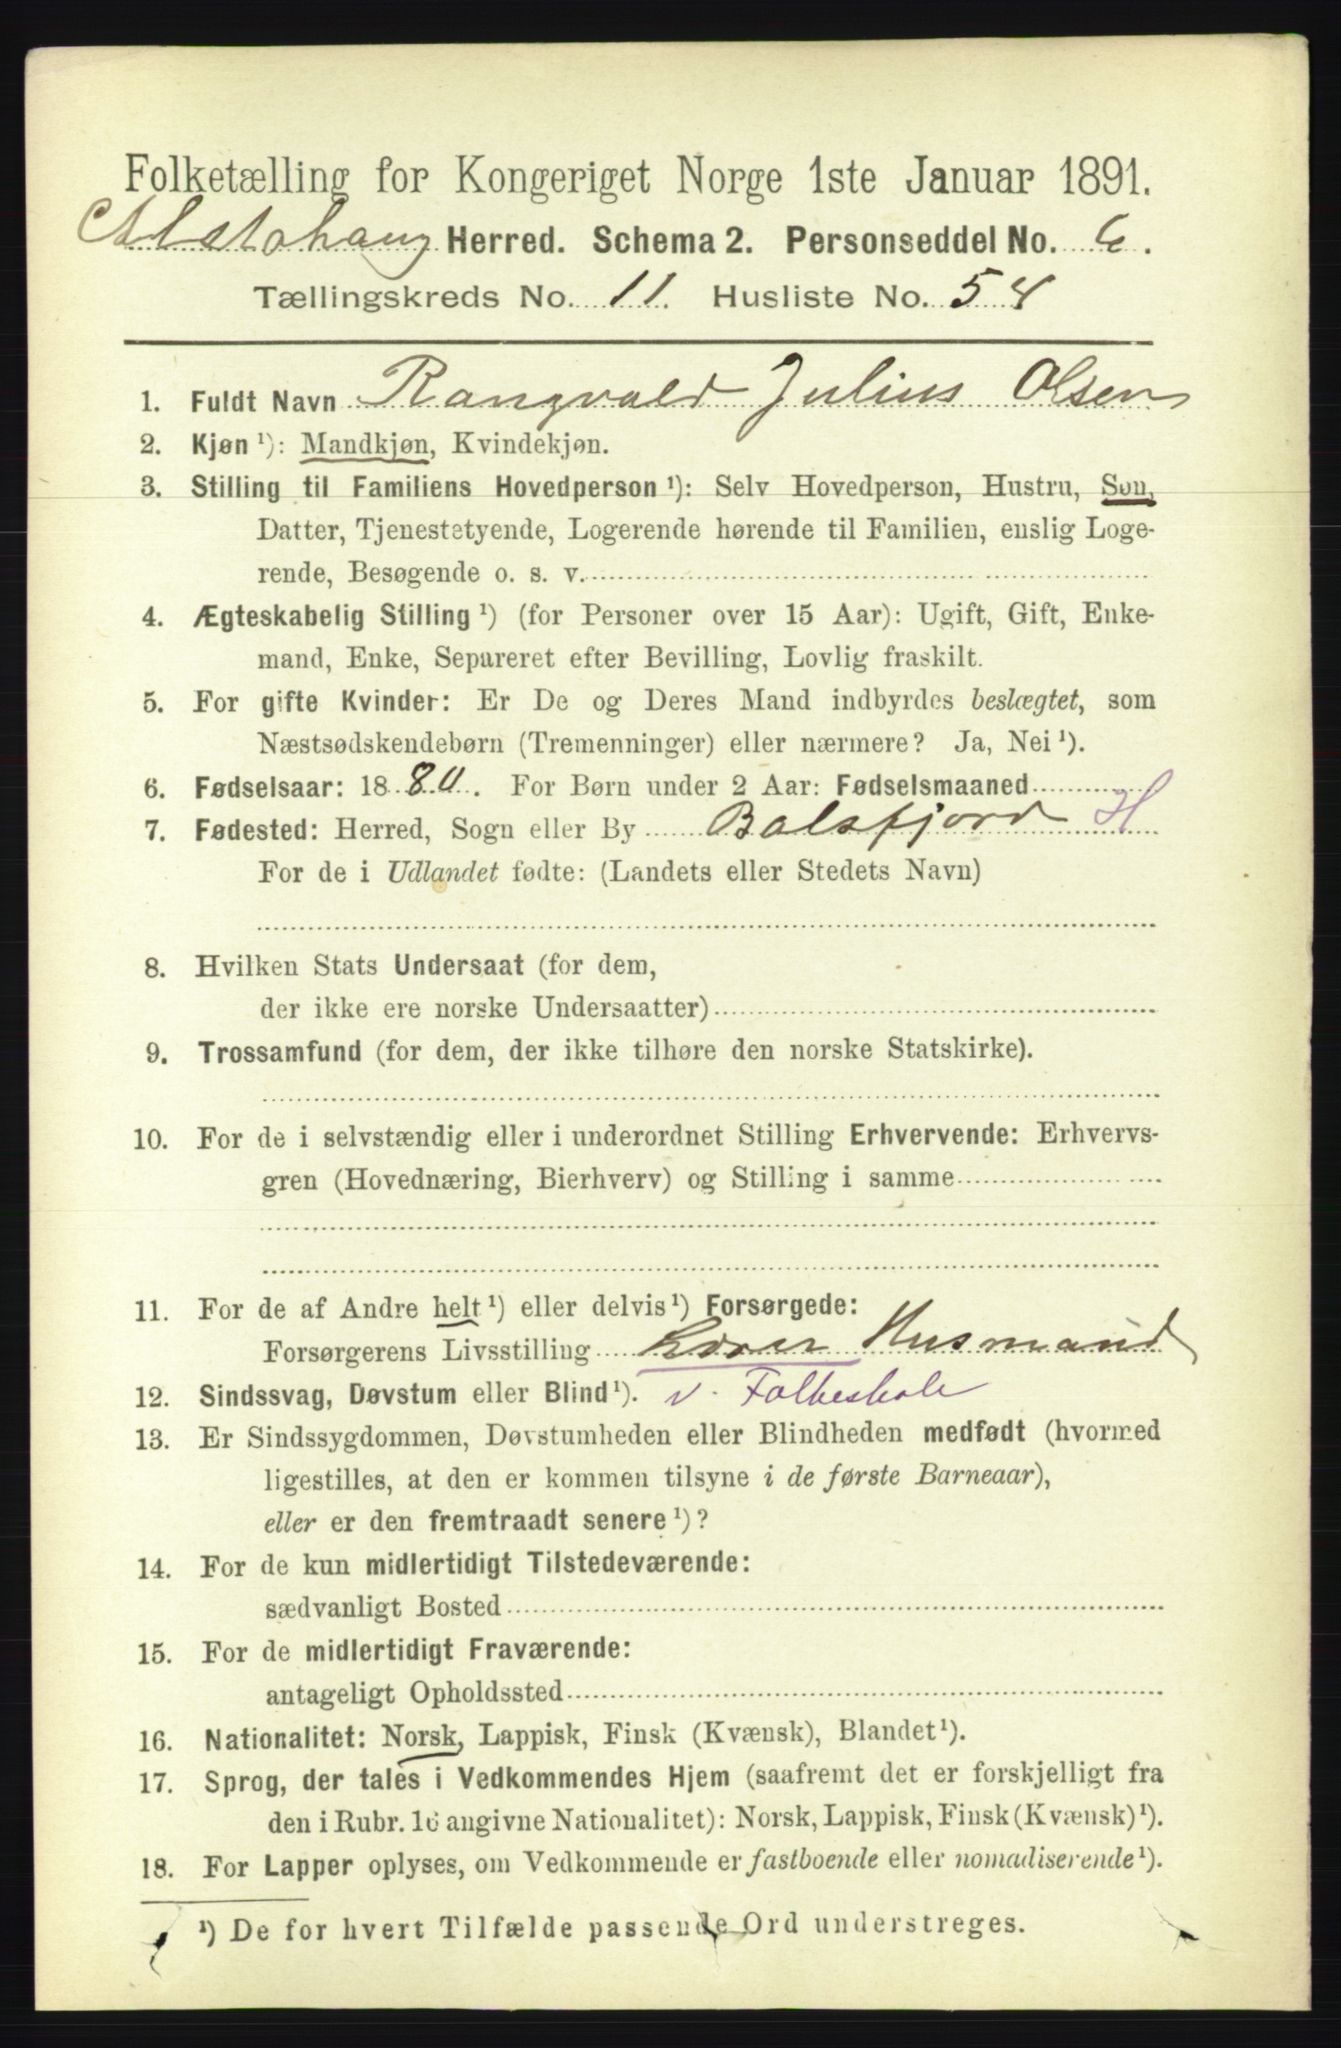 Folketælling for Kongeriget Norge 1ste Januar 1891.
Alstahaug Herred. Schema 2. Personseddel No. 6.
Tællingskreds No. 11. Husliste No. 54
1. Fuldt Navn Rangvald Julius Olsen
2. Kjøn ¹): Mandkjøn, Kvindekjøn.
3. Stilling til Familiens Hovedperson ¹): Selv Hovedperson, Hustru, Søn,
Datter, Tjenestetyende, Logerende hørende til Familien, enslig Loge-
rende, Besøgende o. s. v.
4. Ægteskabelig Stilling ¹) (for Personer over 15 Aar): Ugift, Gift, Enke-
mand, Enke, Separeret efter Bevilling, Lovlig fraskilt.
5. For gifte Kvinder: Er De og Deres Mand indbyrdes beslægtet, som
Næstsødskendebørn (Tremenninger) eller nærmere? Ja, Nei ¹).
6. Fødselsaar: 1880. For Børn under 2 Aar: Fødselsmaaned
7. Fødested: Herred, Sogn eller By Balsfjord H
For de i Udlandet fødte: (Landets eller Stedets Navn)
8. Hvilken Stats Undersaat (for dem,
der ikke ere norske Undersaatter)
9. Trossamfund (for dem, der ikke tilhøre den norske Statskirke).
10. For de i selvstændig eller i underordnet Stilling Erhvervende: Erhvervs-
gren (Hovednæring, Bierhverv) og Stilling i samme
11. For de af Andre helt ¹) eller delvis ¹) Forsørgede:
Forsørgerens Livsstilling Lærer Husmand
12. Sindssvag, Døvstum eller Blind ¹). v. Folkeskole
13. Er Sindssygdommen, Døvstumheden eller Blindheden medfødt (hvormed
ligestilles, at den er kommen tilsyne i de første Barneaar),
eller er den fremtraadt senere ¹)?
14. For de kun midlertidigt Tilstedeværende:
sædvanligt Bosted
15. For de midlertidigt Fraværende:
antageligt Opholdssted
16. Nationalitet: Norsk, Lappisk, Finsk (Kvænsk), Blandet ¹).
17. Sprog, der tales i Vedkommendes Hjem (saafremt det er forskjelligt fra
den i Rubr. 16 angivne Nationalitet): Norsk, Lappisk, Finsk (Kvænsk) ¹).
18. For Lapper oplyses, om Vedkommende er fastboende eller nomadiserende ¹).
¹) De for hvert Tilfælde passende Ord understreges.